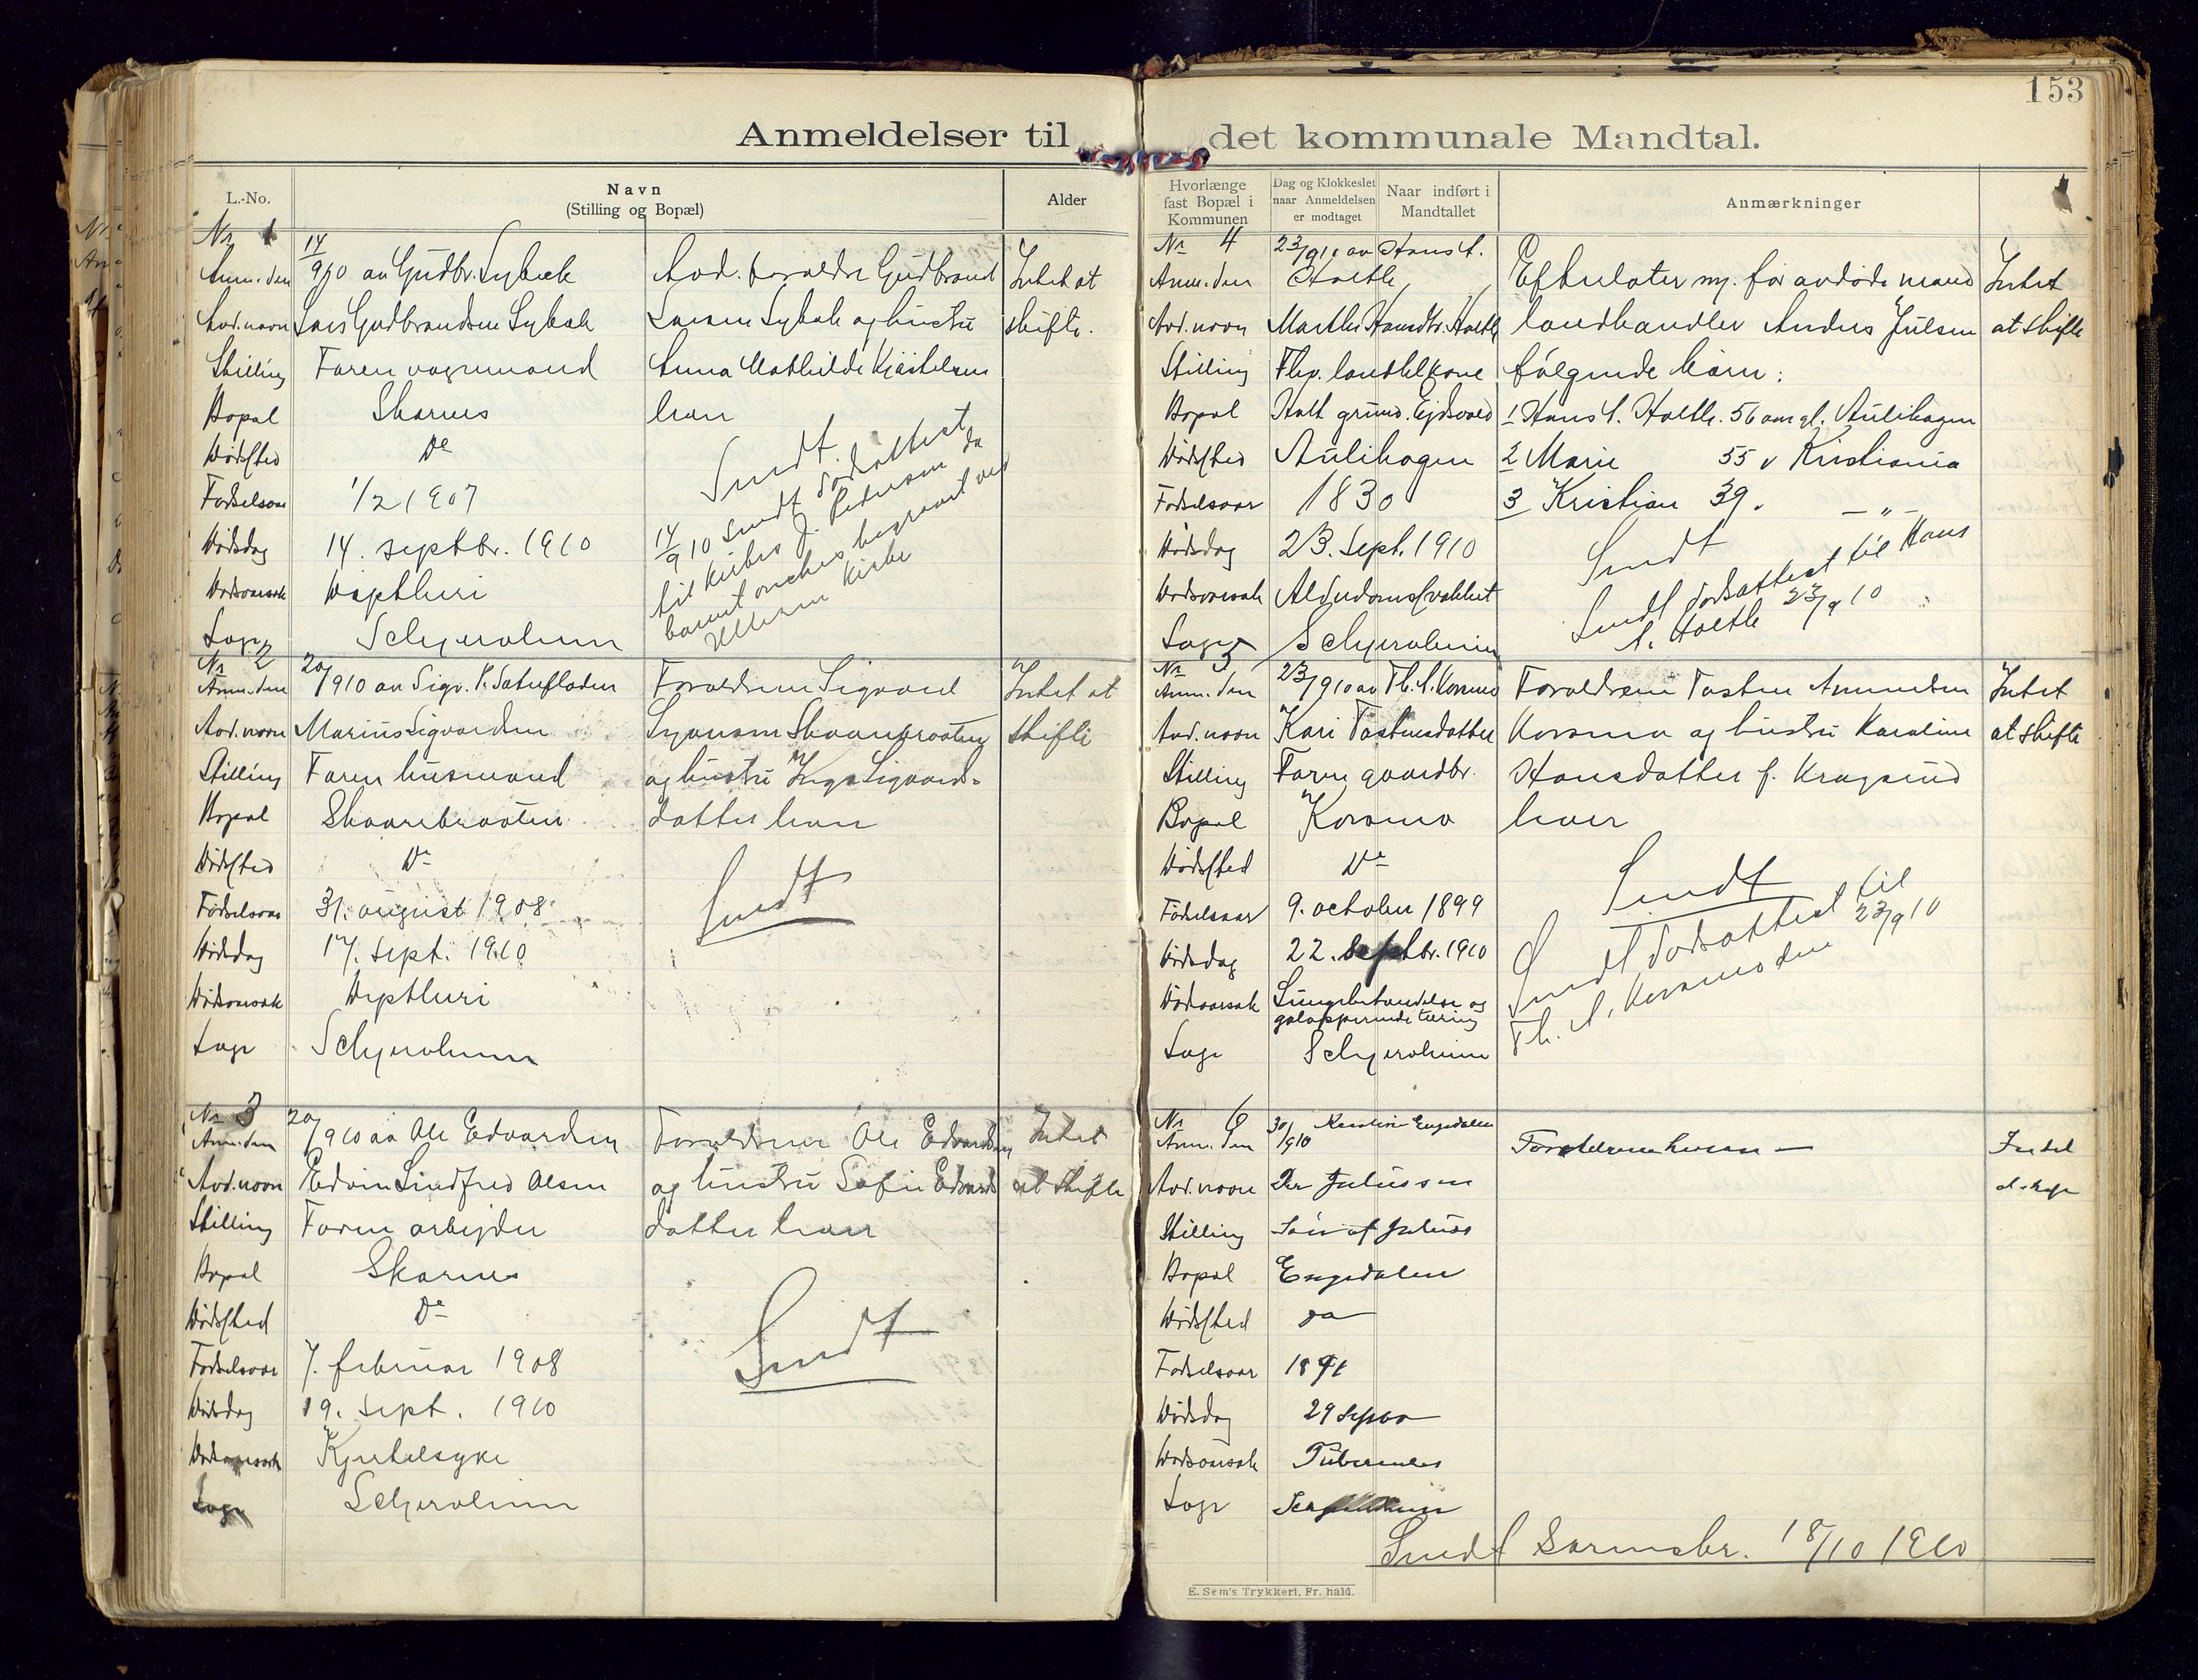 153
Anmeldelser til det kommunale Mandtal.
L.-No.
Navn
(Stilling og Bopæl)
Alder
Nr 1
Anm. den 14/9 10 av Gudbr. Sybæk
Avd. navn Lars Gudbrandsen Sybæk
Stilling Faren vognmand
Bopæl Skarnes
Dødssted Do
Fødselsaar 1/2 1907
Dødsdag 14. septbr. 1910
Dødsaarsak Diptheri
Læge Schjerolum
Avd. foreldre Gudbrand
Larsen Sybæk og hustru
Anna Mathilde
har
Sendt
14/9 10 sendt dødsattest
til J. Pedersen da
barnet ønskes begravet ved
Ullern kirke
Intet at
skifte.
Nr 2
Anm. den 20/9 10 av Sigv. S. Sæterfladen
Avd. navn Marius Sigvardsen
Stilling Faren husmand
Bopæl Skaarebraaten
Dødssted Do
Fødselsaar 31. august 1908
Dødsdag 17. sept. 1910
Dødsaarsak Diptheri
Læge Schjerolum
Forældrene Sigvard
Syversen Skaarebraaten
og hustru Inga Sigvards-
datter har
Sendt
Intet at
skifte
Nr 3
Anm. den 20/9 10 av Ole Edvardsen
Avd. navn Edvin Sindfred Olsen
Stilling Faren arbejder
Bopæl Skarnes
Dødssted Do
Fødselsaar 7. februar 1908
Dødsdag 19. sept. 1910
Dødsaarsak Kjertelsyke
Læge Schjerolum
Forældrene Ole Edvardsen
og hustru Sofie Edvards
datter har
Sendt
Intet
at skifte
Hvorlænge
fast Bopæl i
Kommunen
Dag og Klokkeslet
naar Anmeldelsen
er modtaget
Naar indført i
Mandtallet
Anmærkninger
Nr 4
Anm. den 23/9 10 av Hans A. Holth
Avd. navn Marthe Hansdtr. Holth
Stilling Fhv. landhkone
Bopæl Holt grund. Ejdsvold
Dødssted Aulihagen
Fødselsaar 1830
Dødsdag 23. Sept. 1910
Dødsaarsak Alderdomssvakhet
Læge Schjerolum
Efterlater m. før avdøde mand
landhandler Anders Julsen
følgende børn:
1 Hans A. Holth. 56 aar gl. Aulihagen
2 Marie 55 " Kristiania
3 Kristian 39. — " —
Sendt
Sendt dødsattest til Hans
A. Holth 23/9 10
Intet
at skifte
Nr 5
Anm. den 23/9 10 av Th. A. Korsmo
Avd. navn Kari Tostensdatter
Stilling Faren gaardbr.
Bopæl Korsmo
Dødssted Do
Fødselsaar 9. october 1899
Dødsdag 22. Septbr. 1910
Dødsaarsak Lungebetændelse og
galopperende tæring
Læge Schjerolum
Forældrene Tosten Amundsen
Korsmo og hustru Karoline
Hansdatter f. Kragsrud
lever
Sendt
Sendt dødsattest til
Th. A. Korsmo den 23/9 10
Intet
at skifte
Nr 6
Anm. den 30/9 10 Karoline Engedalen
Avd. navn Per Juliussen
Stilling Søn af Julius
Bopæl Engedalen
Dødssted do
Fødselsaar 1891
Dødsdag 29 Septbr
Dødsaarsak Tuberculos
Læge
Forældrene leven —
Intet
at skifte
Sendt Sorenskr. 18/10 1910
E. Sem's Trykkeri, Fr. hald.